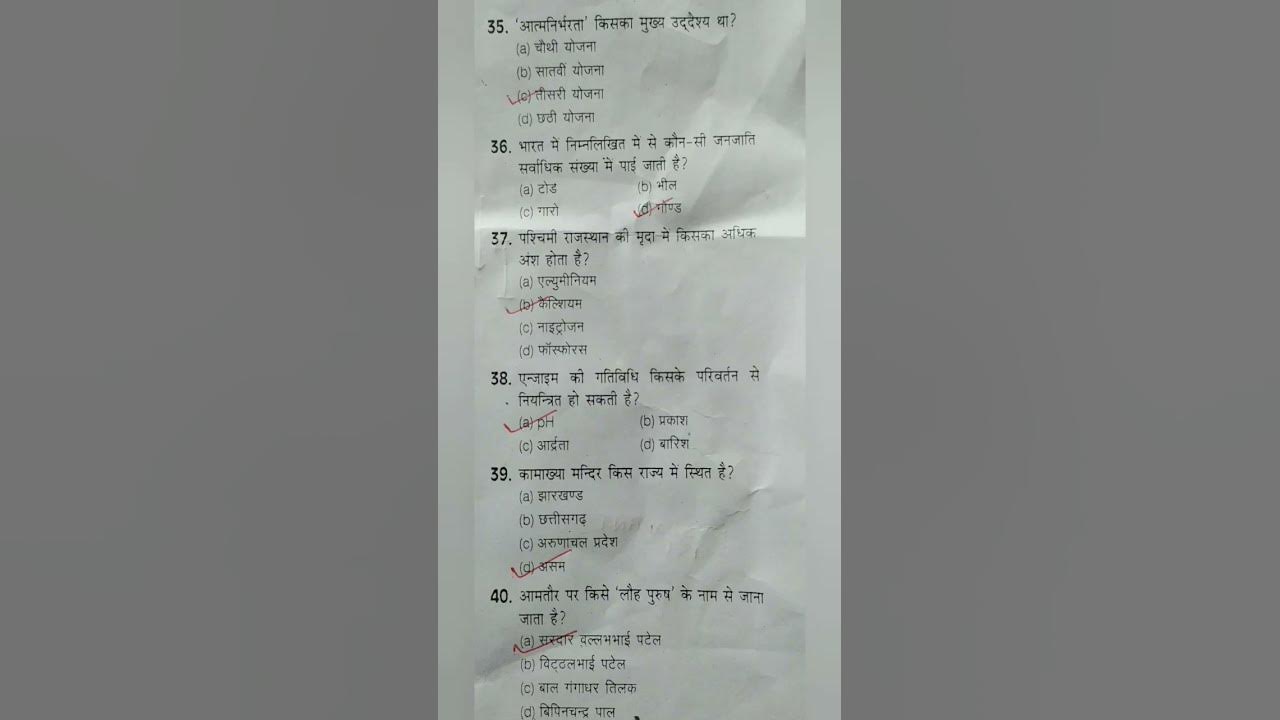 35. 'आत्मनिर्भरता' किसका मुख्य उद्देश्य था?
(a) चौथी योजना
(b) सातवीं योजना
(c) तीसरी योजना
(d) छठी योजना
36. भारत में निम्नलिखित में से कौन-सी जनजाति
सर्वाधिक संख्या में पाई जाती है?
(a) टोड (b) भील
(c) गारो (d) गोण्ड
37. पश्चिमी राजस्थान की मृदा में किसका अधिक
अंश होता है?
(a) एल्युमीनियम
(b) कैल्शियम
(c) नाइट्रोजन
(d) फॉस्फोरस
38. एन्जाइम की गतिविधि किसके परिवर्तन से
नियन्त्रित हो सकती है?
(a) pH (b) प्रकाश
(c) आर्द्रता (d) बारिश
39. कामाख्या मन्दिर किस राज्य में स्थित है?
(a) झारखण्ड
(b) छत्तीसगढ़
(c) अरुणाचल प्रदेश
(d) असम
40. आमतौर पर किसे 'लौह पुरुष' के नाम से जाना
जाता है?
(a) सरदार वल्लभभाई पटेल
(b) विट्ठलभाई पटेल
(c) बाल गंगाधर तिलक
(d) बिपिनचन्द्र पाल